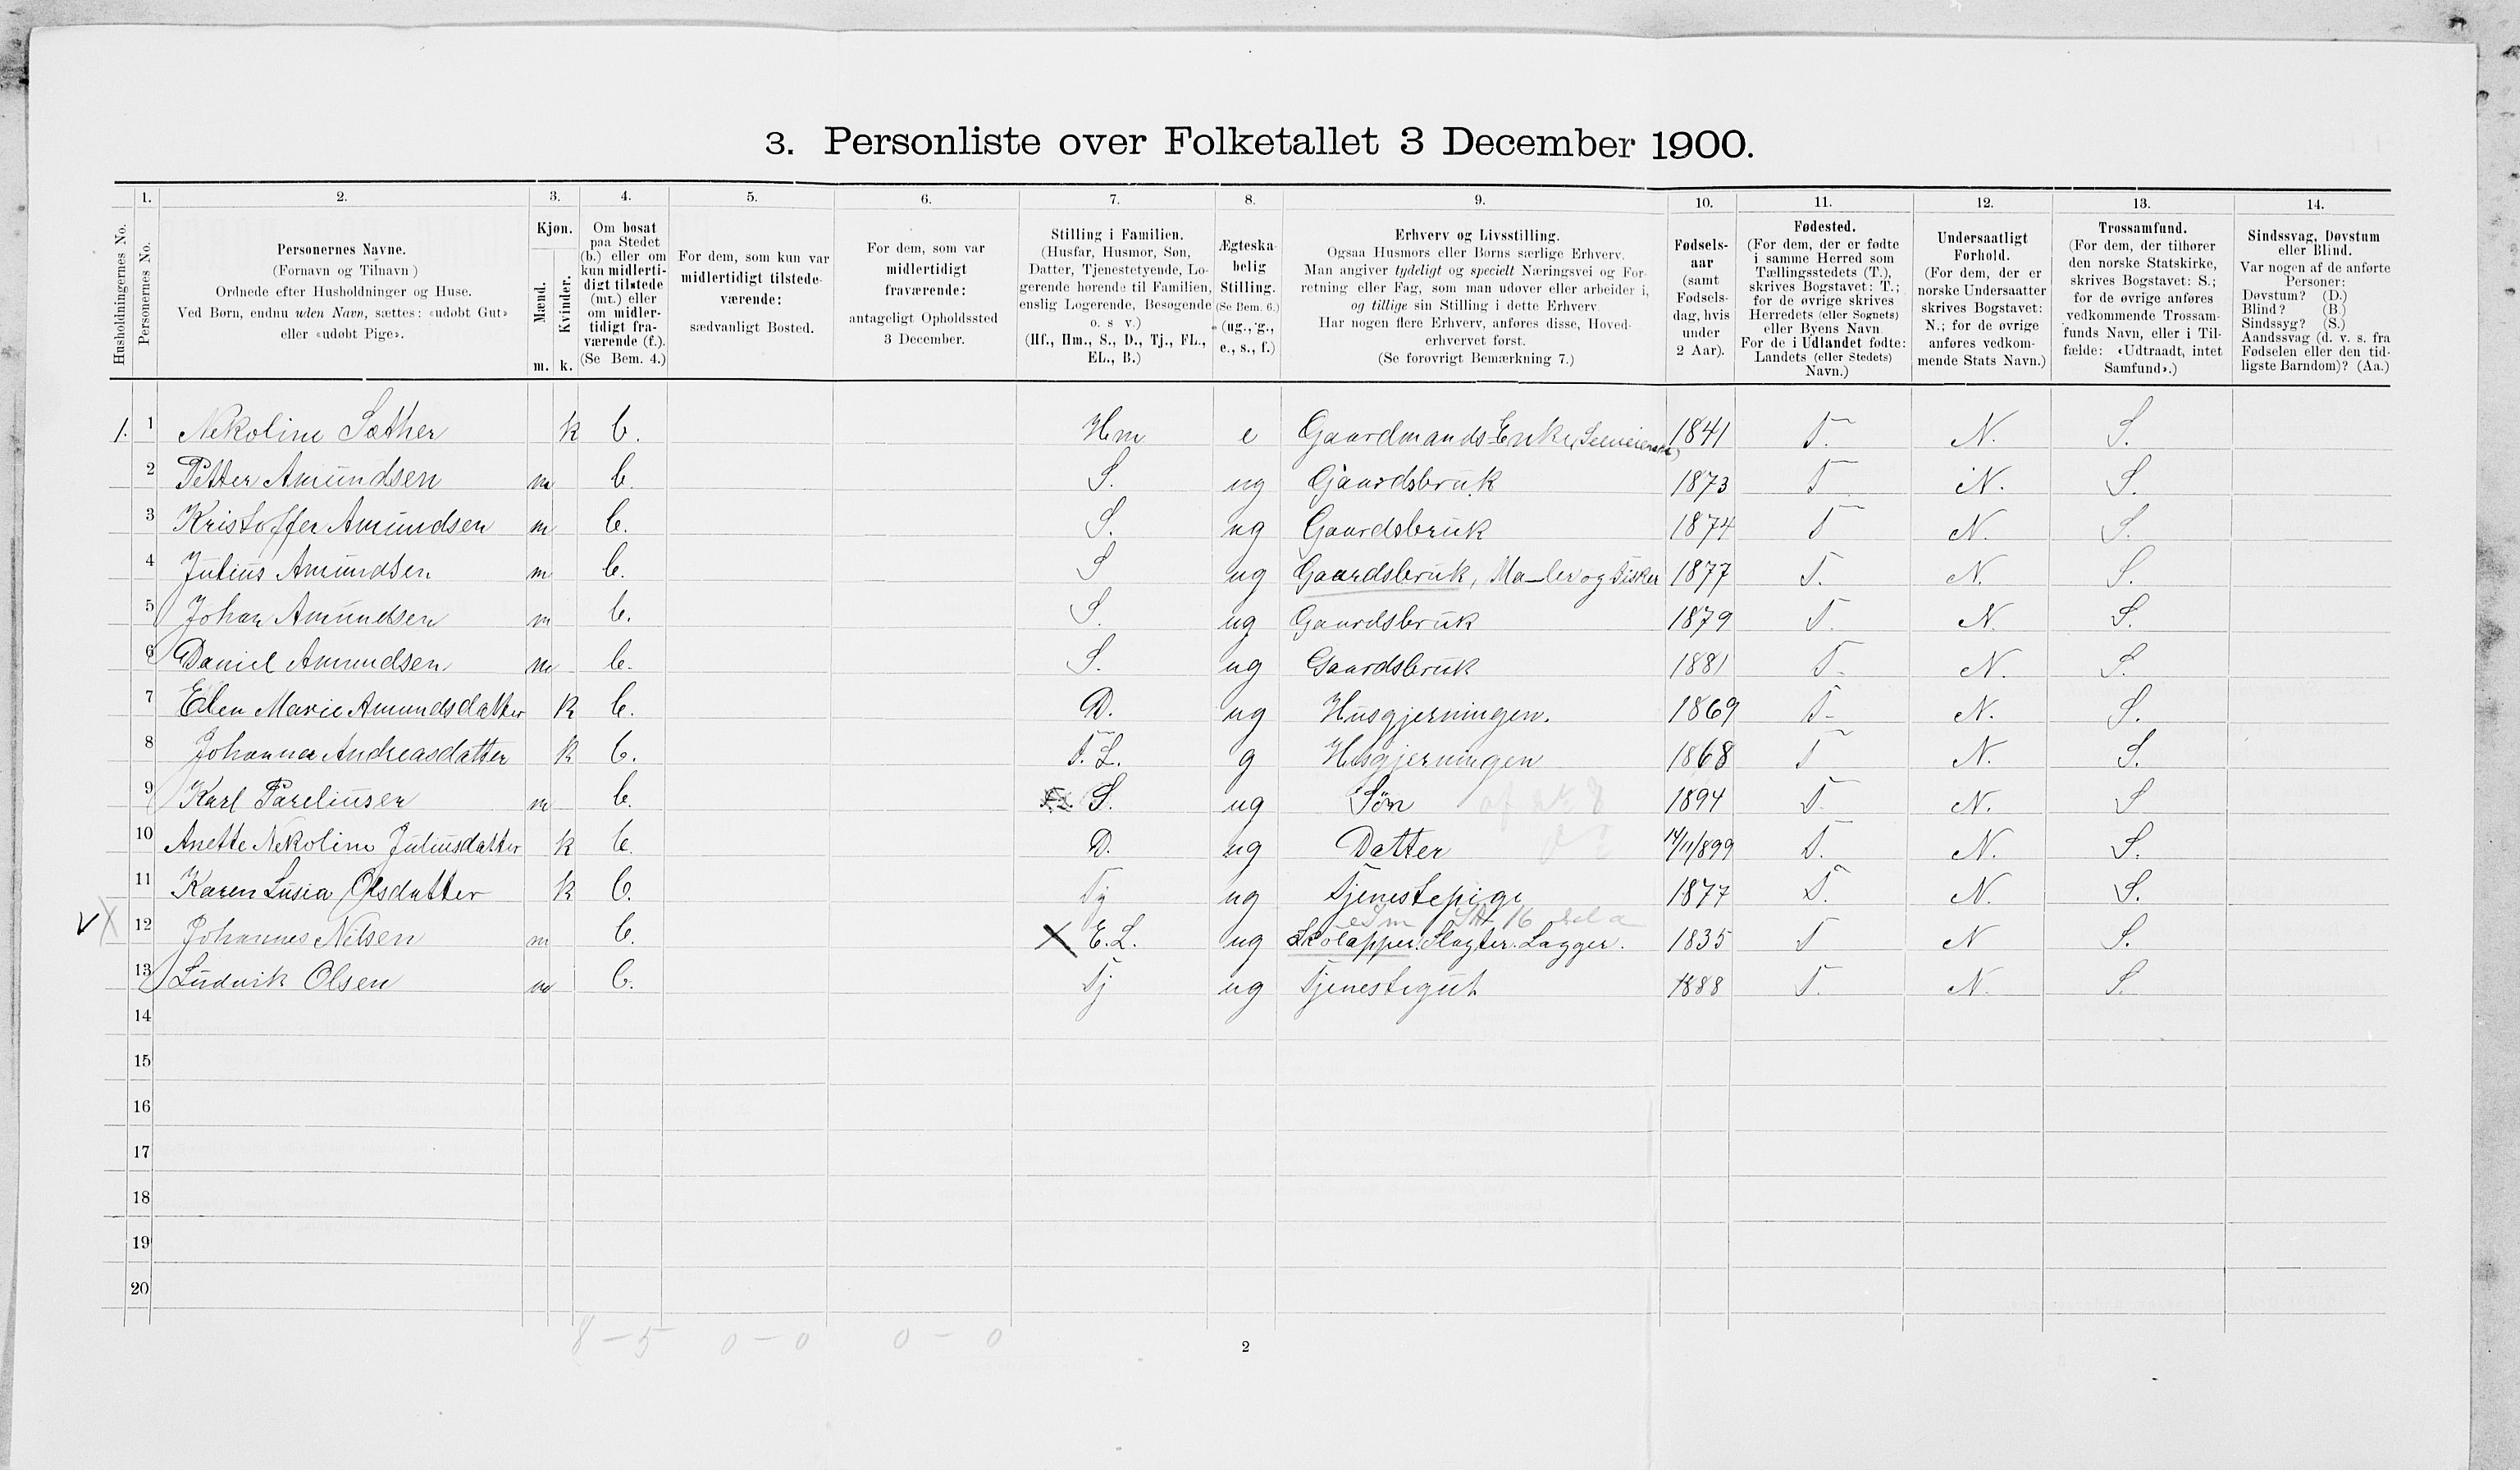 3. Personliste over Folketallet 3 December 1900.
Husholdningernes No.
1.
Personernes No.
2.
Personernes Navne.
(Fornavn og Tilnavn)
Ordnede efter Husholdninger og Huse.
Ved Børn, endnu uden Navn, sættes: «udøbt Gut»
eller «udøbt Pige».
3.
Kjøn.
Mænd.
Kvinder.
m. k.
4.
Om bosat
paa Stedet
(b.) eller om
kun midlerti-
digt tilstede
(mt.) eller
om midler-
tidigt fra-
værende (f.).
(Se Bem. 4.)
5.
For dem, som kun var
midlertidigt tilstede-
værende:
sædvanligt Bosted.
6.
For dem, som var
midlertidigt
fraværende:
antageligt Opholdssted
3 December.
7.
Stilling i Familien.
(Husfar, Husmor, Søn,
Datter, Tjenestetyende, Lo-
gerende hørende til Familien,
enslig Logerende, Besøgende
o. s v.)
(Hf., Hm., S., D., Tj., FL.,
EL., B.)
8.
Ægteska-
belig
Stilling.
(Se Bem. 6.)
(ug., g.,
e., s., f.)
9.
Erhverv og Livsstilling.
Ogsaa Husmors eller Børns særlige Erhverv.
Man angiver tydeligt og specielt Næringsvei og For-
retning eller Fag, som man udøver eller arbeider i,
og tillige sin Stilling i dette Erhverv.
Har nogen flere Erhverv, anføres disse, Hoved-
erhvervet først.
(Se forøvrigt Bemærkning 7.)
10.
Fødsels-
aar
(samt
Fødsels-
dag, hvis
under
2 Aar).
11.
Fødested.
(For dem, der er fødte
i samme Herred som
Tællingsstedets (T.),
skrives Bogstavet: T.;
for de øvrige skrives
Herredets (eller Sognets)
eller Byens Navn.
For de i Udlandet fødte:
Landets (eller Stedets)
Navn.)
12.
Undersaatligt
Forhold.
(For dem, der er
norske Undersaatter
skrives Bogstavet:
N.; for de øvrige
anføres vedkom-
mende Stats Navn.)
13.
Trossamfund.
(For dem, der tilhører
den norske Statskirke,
skrives Bogstavet: S.;
for de øvrige anføres
vedkommende Trossam-
funds Navn, eller i Til-
fælde: «Udtraadt, intet
Samfund».)
14.
Sindssvag, Døvstum
eller Blind.
Var nogen af de anførte
Personer:
Døvstum? (D.)
Blind? (B.)
Sindssyg? (S.)
Aandssvag (d. v. s. fra
Fødselen eller den tid-
ligste Barndom)? (Aa.)
1. 1 Nekoline Sæther k b. Hm e Gaardmands Enke (Selveiende) 1841 T. N. S.
2 Petter Amundsen m b. S. ug Gaardsbruk 1873 T N. S.
3 Kristoffer Amundsen m b. S. ug Gaardsbruk 1874 T N. S.
4 Julius Amundsen m b. S ug Gaardsbruk, Maler og Fisker 1877 T. N. S.
5 Johan Amundsen m b. S. ug Gaardsbruk 1879 T. N. S.
6 Daniel Amundsen m b. S. ug Gaardsbruk 1881 T. N. S.
7 Elen Marie Amundsdatter k b. D. ug Husgjerningen. 1869 T. N. S.
8 Johanna Andreasdatter k b. F. L. g Husgjerningen 1868 T N. S.
9 Karl Pareliusen m b. S. ug Søn af No 8 1894 T. N. S
10 Anette Nekoline Juliusdatter k b. D. ug Datter 14/11/899 T. N. S.
11 Karen Lusia Olsdatter k b. Tj ug Tjenestepige 1877 T. N. S.
V X 12 Johannes Nilsen m b. X E. L. ug Skolapper. Slagter. Lagger. 1835 T N S.
13 Ludvik Olsen m b. Tj ug Tjenestegut 1888 T. N. S.
14
15
16
17
18
19
20
8 – 5 0 – 0 0 – 0
2